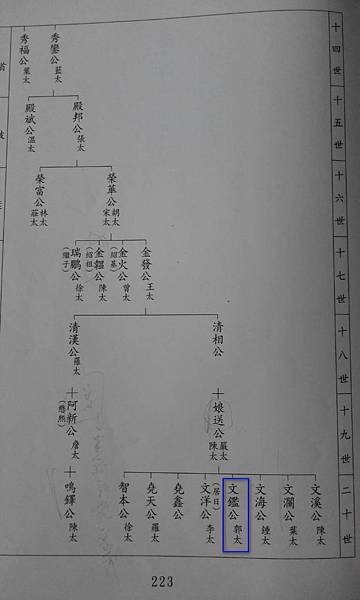 十四世
秀鑾公 藍太
秀福公 葉太
十五世
殿邦公 張太
殿斌公 溫太
十六世
榮華公 胡太 宋太
榮富公 林太 莊太
十七世
金發公 王太
金火公 曾太
(紹基)
金鎰公 陳太
(紹祖)
瑞鵬公 徐太
(繼子)
十八世
清相公
清漢公 羅太
十九世
娘送公 嚴太 陳太
阿新公 詹太
(懋熙)
二十世
文溪公 陳太
文瀾公 葉太
文海公 鍾太
文鑑公 郭太
文洋公 李太
(居日)
堯鑫公
堯天公 羅太
智本公 徐太
鳴鐸公 陳太
223